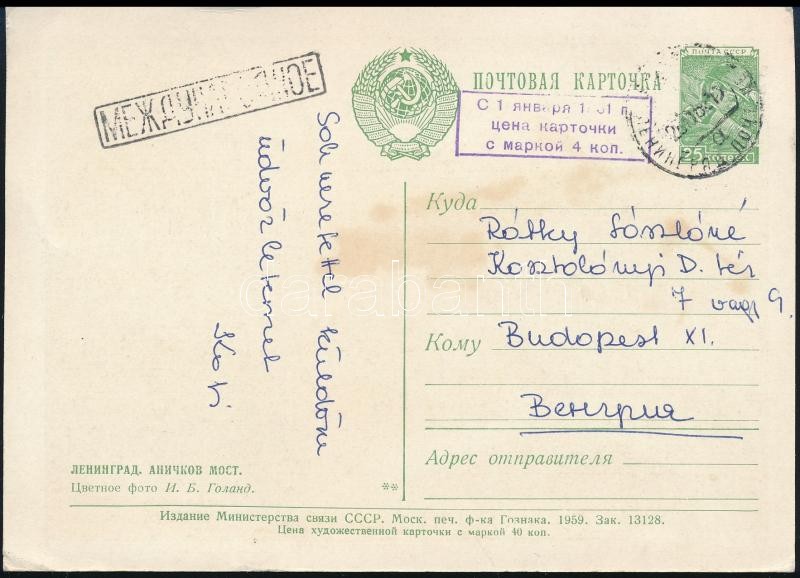 МЕЖДУНАРОДНОЕ
ПОЧТОВАЯ КАРТОЧКА
ПОЧТА СССР
25 КОПЕЕК
С 1 января 1961 г.
цена карточки
с маркой 4 коп.
Sok szeretettel küldöm
üdvözletemet
Kati
Куда
Rátky Lászlóné
Kosztolányi D. tér
7 vagy 9.
Кому
Budapest XI.
Венгрия
Адрес отправителя
ЛЕНИНГРАД. АНИЧКОВ МОСТ.
Цветное фото И. Б. Голанд.
**
Издание Министерства связи СССР. Моск. печ. ф-ка Гознака. 1959. Зак. 13128.
Цена художественной карточки с маркой 40 коп.
carabanth